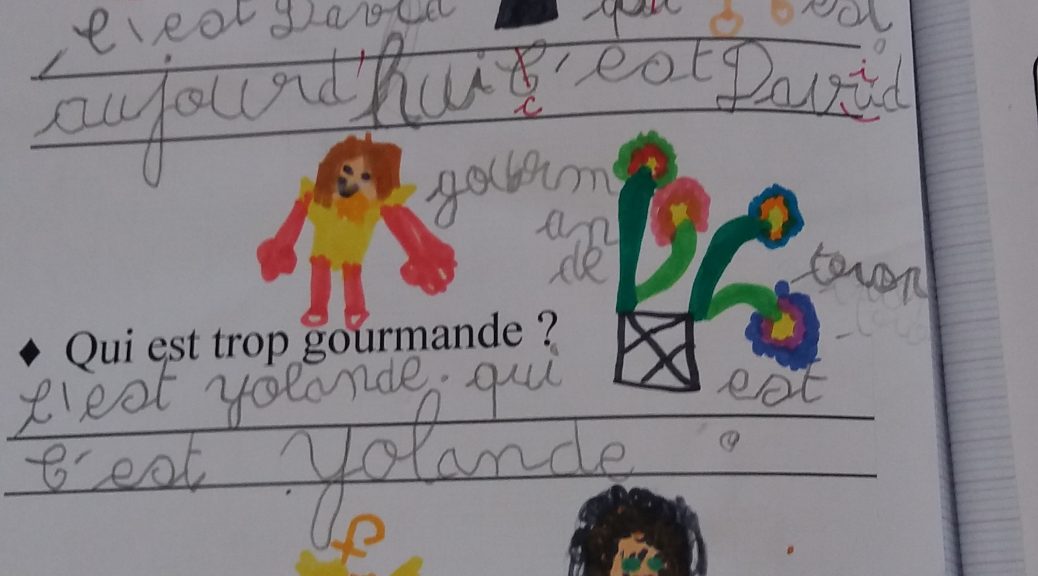 c'est David qui est
aujourd'hui c'est David
gourm
an
de
◆ Qui est trop gourmande ?
c'est yolande. qui est
c'est Yolande